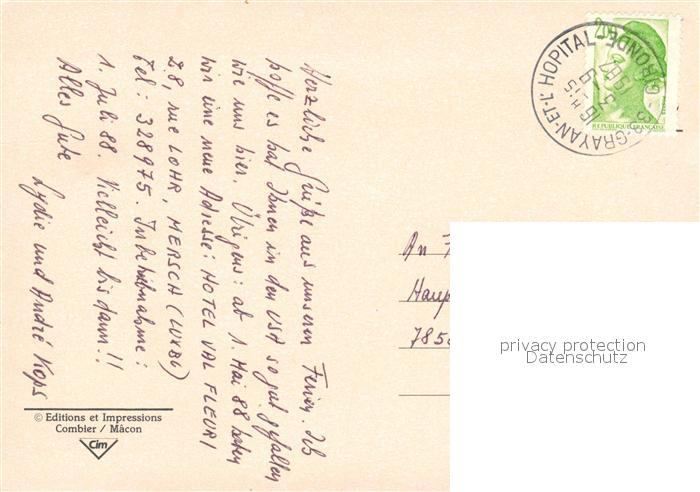 Herzliche Grüße aus unseren Ferien. Ich
hoffe es hat Ihnen in den USA so gut gefallen
wie uns hier. Übrigens: ab 1. Mai 88 haben
wir eine neue Adresse: HOTEL VAL FLEURI
28, rue LOHR, MERSCH (LUXBG)
Tel: 328975. Inbetriebnahme:
1. Juli 88. Vielleicht bis dann!!
Alles Gute
Lydie und André Kops
© Editions et Impressions
Combier / Mâcon
Cim
GRAYAN-ET-L'HOPITAL
GIRONDE
REPUBLIQUE FRANÇAISE
An F
Haup
785
privacy protection
Datenschutz